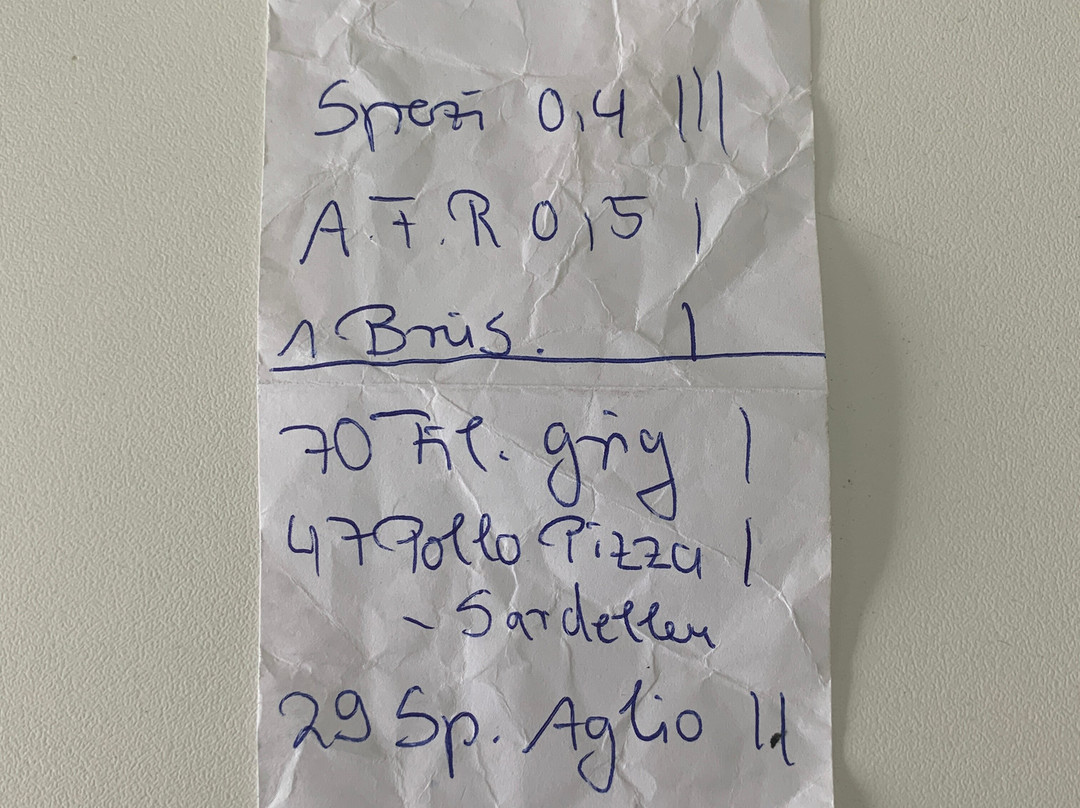 Spezi 0,4 |||
A.F.R 0,5 |
1 Brus. |
70 Fil. grig |
47 Pollo Pizza |
- Sardellen
29 Sp. Aglio ||